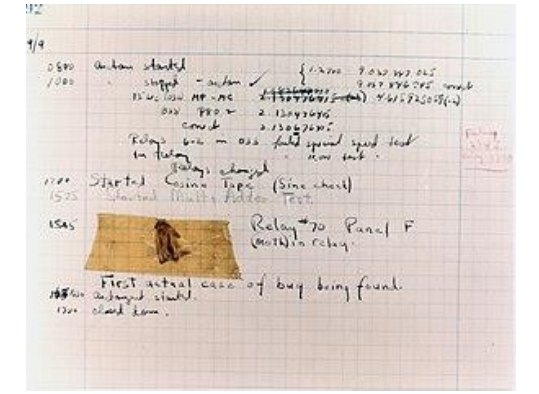 9/9
0800 antan started
1000 " stopped - antan ✓
{ 1.2700 9.037 847 025
9.037 846 995 correct
2.130476415
033 PRO 2 2.130476415
correct 2.130676415
Relays 6-2 in 033 failed special speed test
in relay " test.
Relays changed
Started Cosine Tape (Sine check)
1525 Started Multi Adder Test.
1545 Relay #70 Panel F
(moth) in relay.
First actual case of bug being found.
antangent started.
1700 closed down.